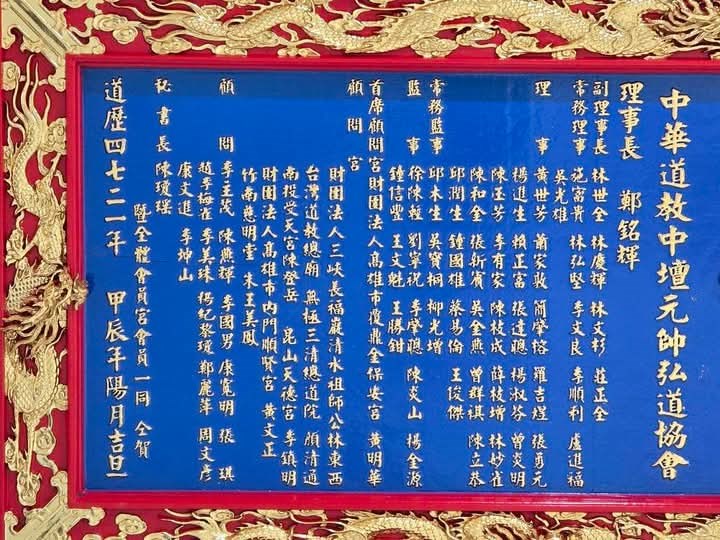 中華道教中壇元帥弘道協會
理事長 鄭銘輝
副理事長 林世全 林慶輝 林文杉 莊正全
常務理事 施富貴 林弘堅 李文良 李順利 盧進福
吳光雄
理事 黃世芳 蕭家敦 簡肇榕 羅吉煌 張勇元
楊進生 賴正富 張達聰 楊淑芬 曾炎明
陳丕芳 李有家 陳枝成 薛枝增 林妙雀
陳和全 張新賓 吳金燕 曾群祺 陳立恭
邱潤生 鍾國雄 蔡易倫 王俊傑
常務監事 邱木生 吳寶桐 柳光增
監事 徐陳輕 劉寧祝 李肇聰 陳炎山 楊金源
鍾信豐 王文魁 王勝鉗
首席顧問宮 財團法人高雄市瓊鼎金保安宮 黃明華
顧問宮
財團法人三峽長福巖清水祖師公 林東西
台灣道教總廟 無極三清總道院 顏清通
南投受天宮 陳登岳 崑山天德宮 李鎮明
財團法人高雄市內門順賢宮 黃文正
竹南慈明堂 朱王美鳳
顧問 李王茂 陳燕輝 李國男 康寬明 張琪
趙李梅雀 李美珠 楊紀黎瓊 鄭麗萍 周文彥
康文進 李坤山
秘書長 陳瓊瑤
暨全體會員宮會員一同 仝賀
道歷四七二一年 甲辰年陽月吉旦